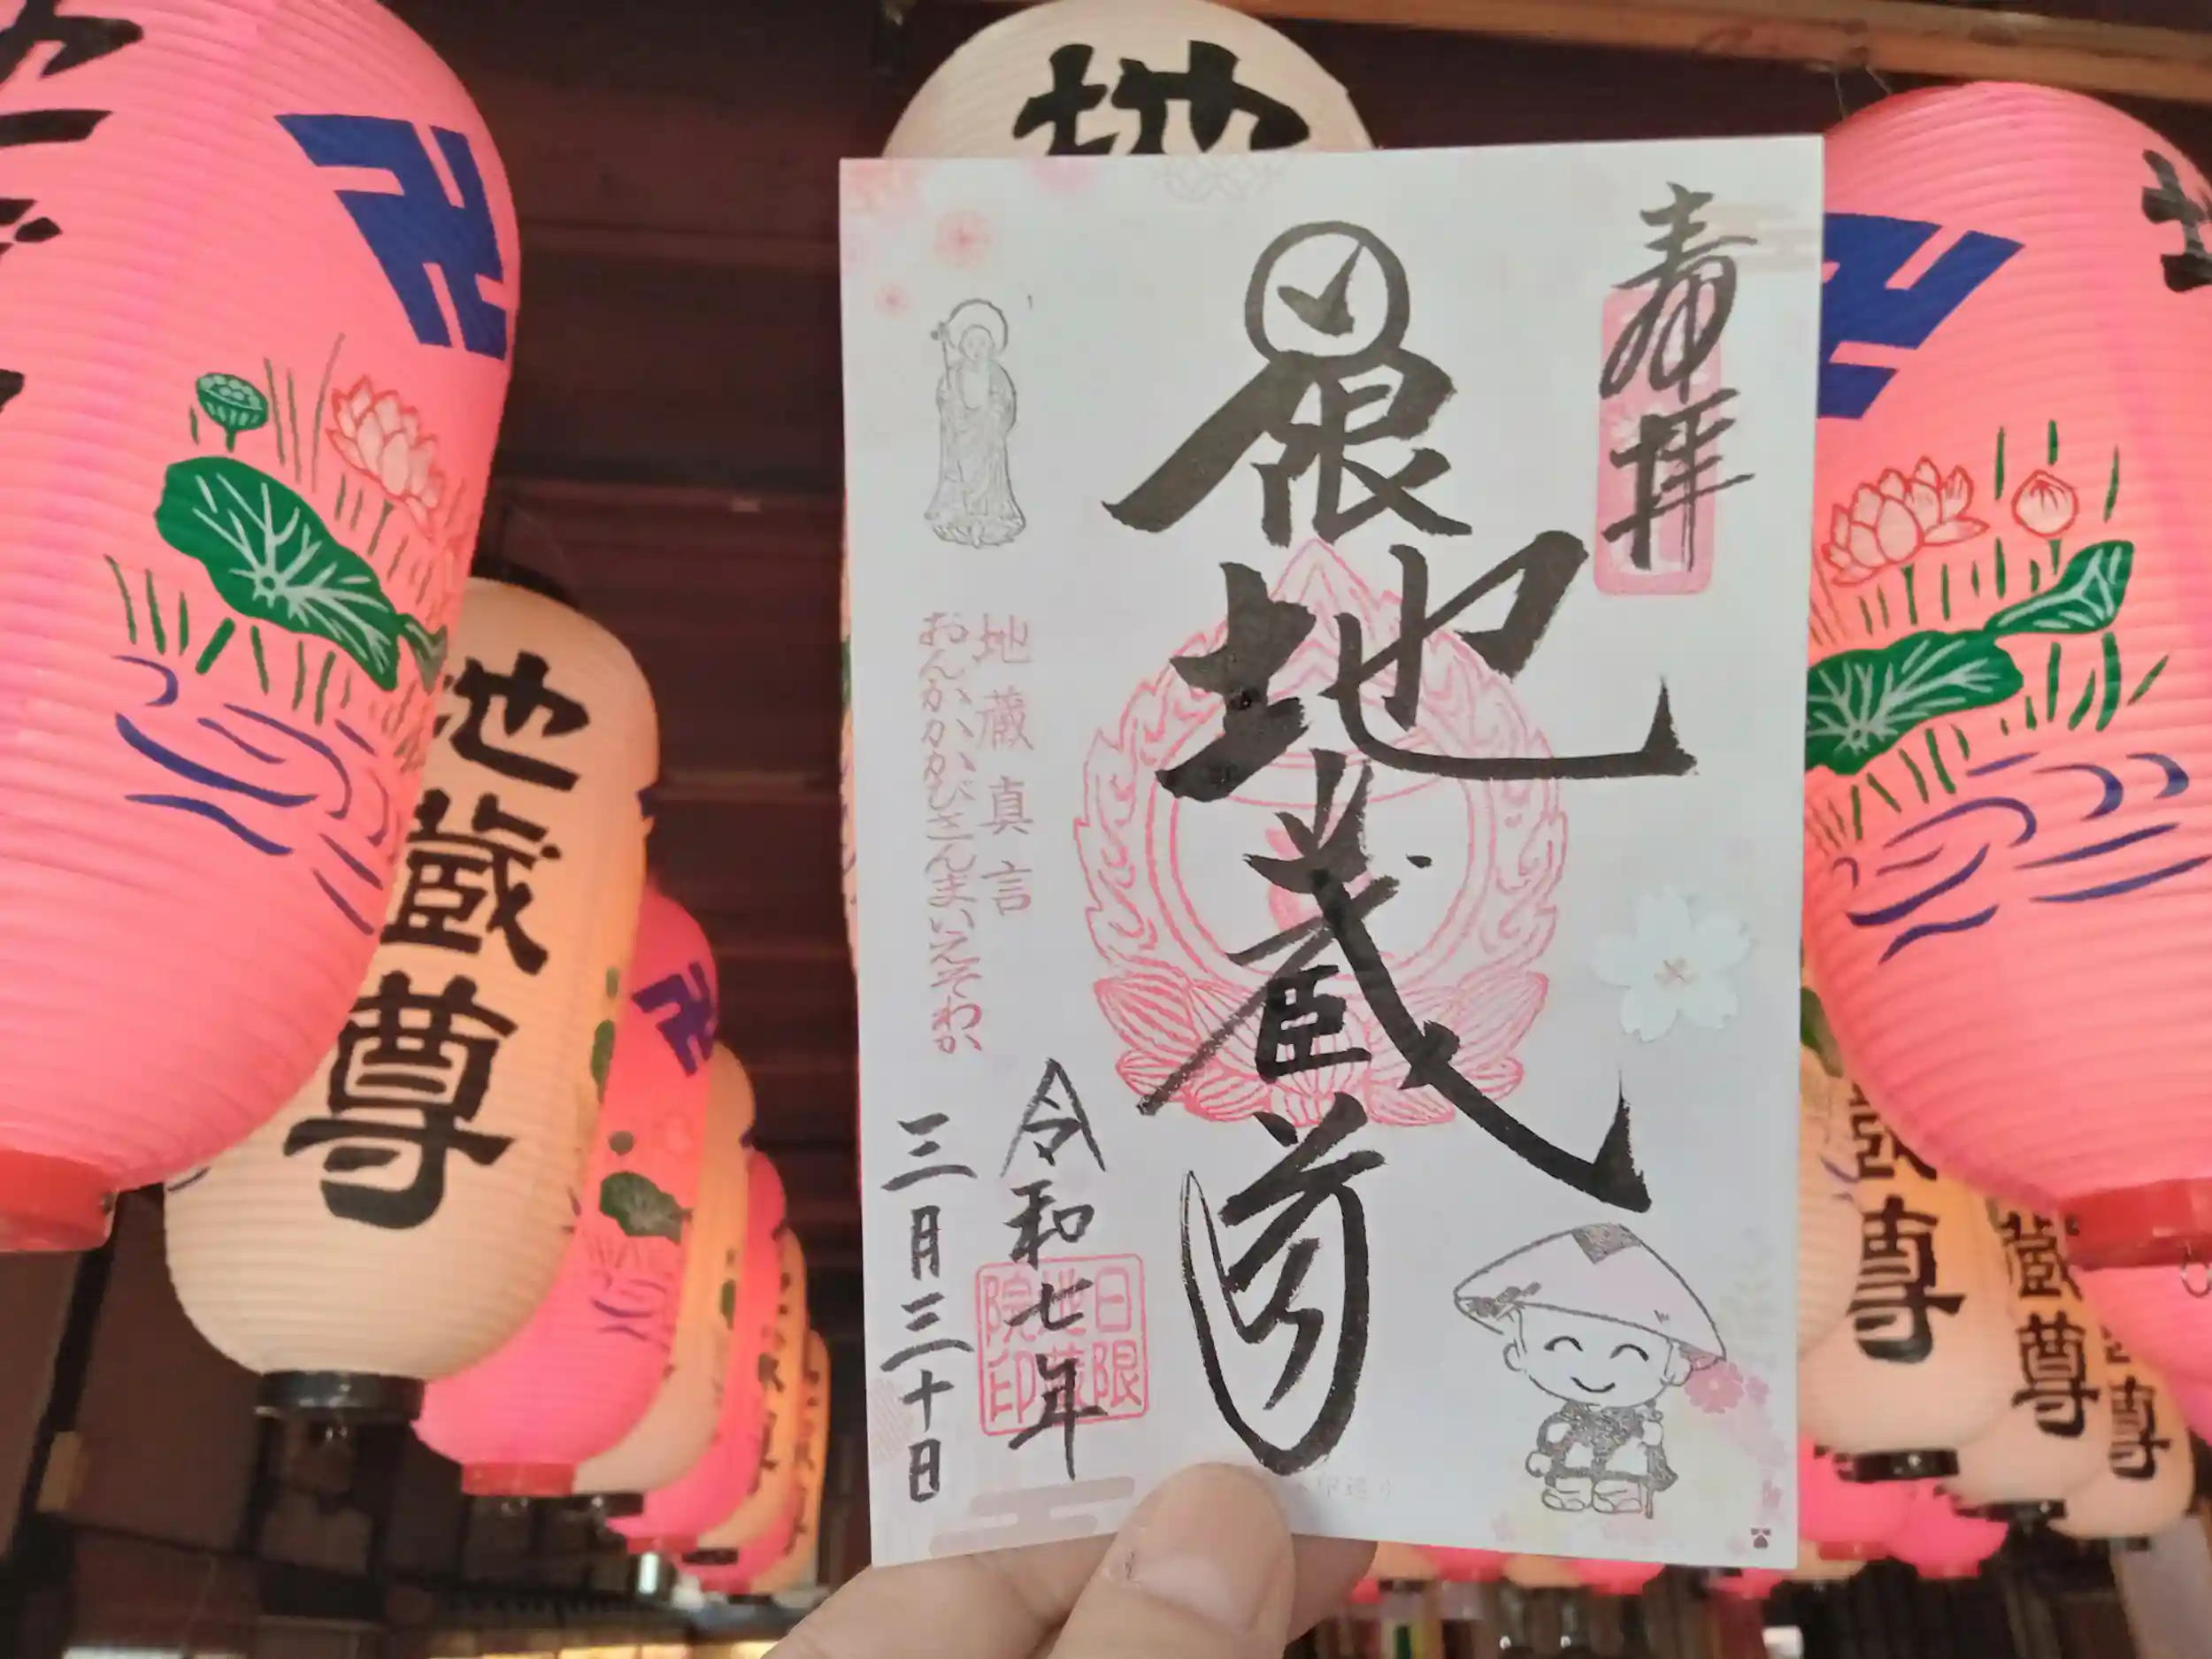 奉拝
日限地蔵尊
地蔵真言
おんかかかびさんまいえそわか
令和七年
三月三十日
日限
地蔵
院印
地
地蔵尊
蔵尊
蔵尊
尊